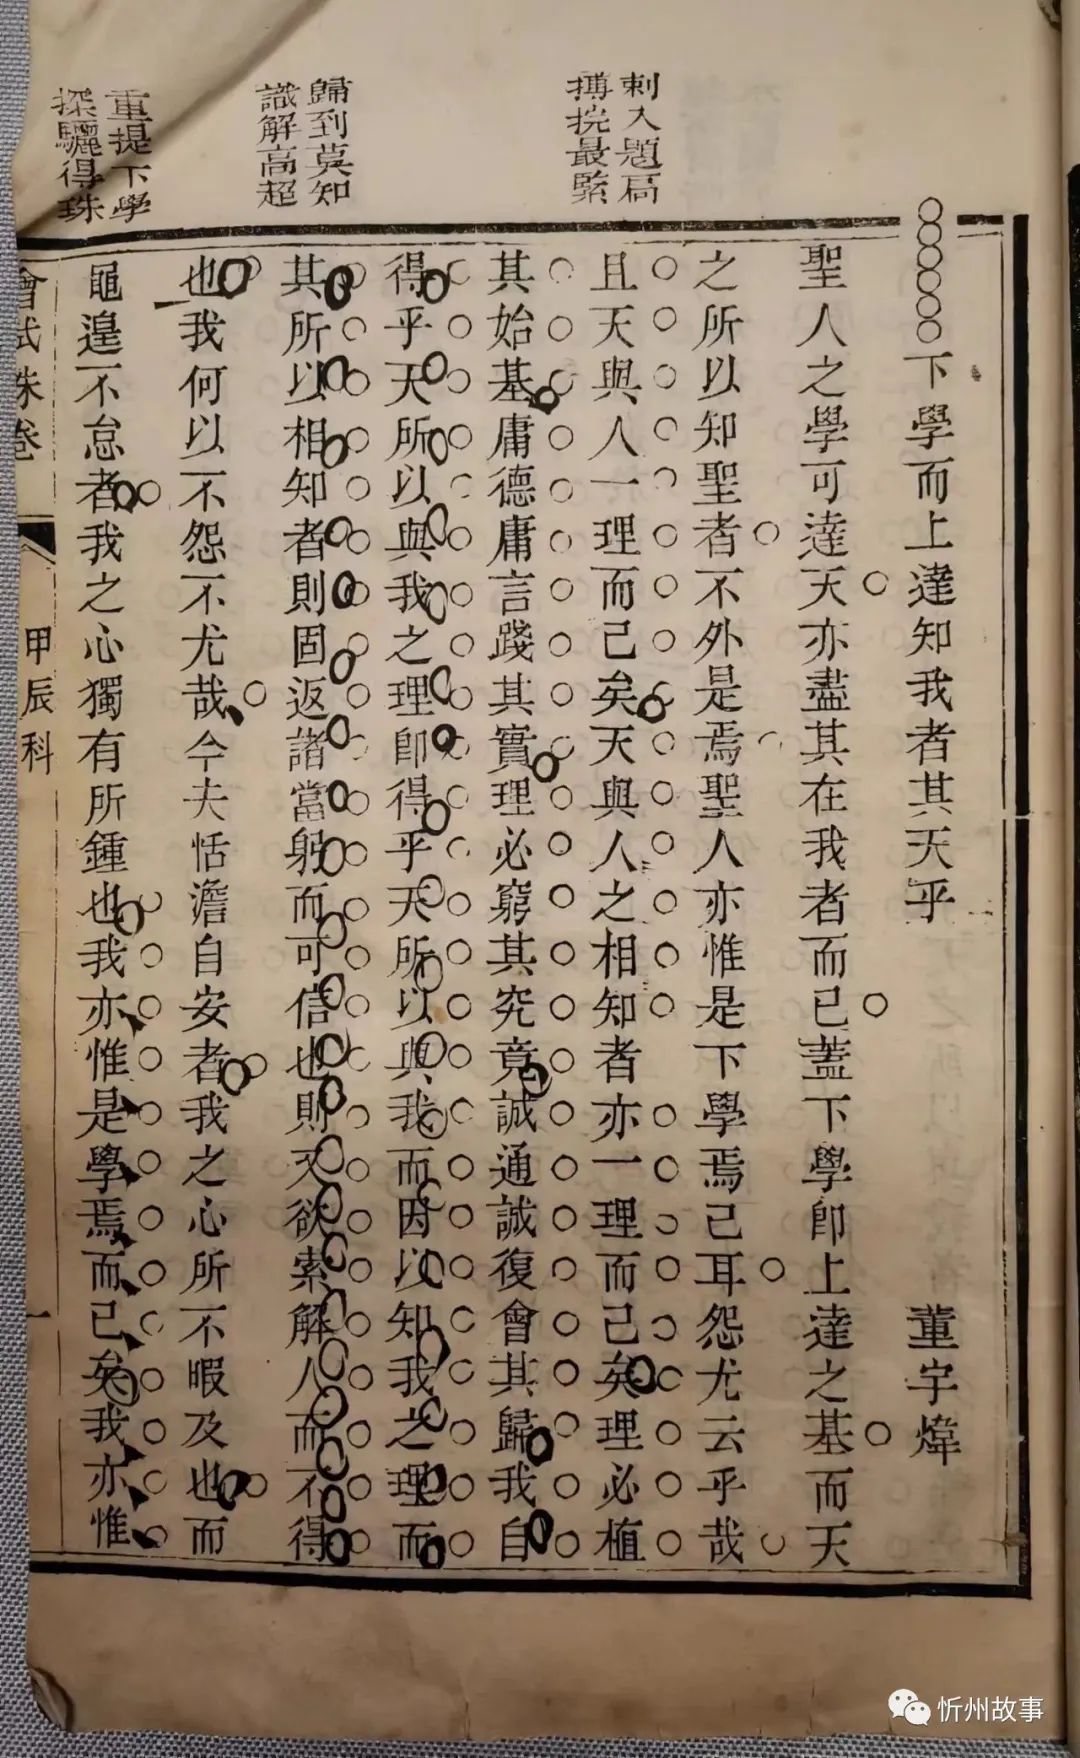 刺入題
最緊
歸到莫知
識解高超
重提下學
探驪得珠
下學而上達知我者其天乎
董宇煒
聖人之學可達天亦盡其在我者而已蓋下學卽上達之基而天
之所以知聖者不外是焉聖人亦惟是下學焉己耳怨尤云乎哉
且天與人一理而己矣天與人之相知者亦一理而己矣理必植
其始基庸德庸言踐其實理必窮其究竟誠通誠復會其歸我自
得乎天所以與我之理卽得乎天所以與我而因以知我之理而
其所以相知者則固返諸當躬而可信也則又欲索解人而不得
也我何以不怨不尤哉今夫恬澹自安者我之心所不暇及也而
黽遑不怠者我之心獨有所鍾也我亦惟是學焉而己矣我亦惟
會試硃卷
甲辰科
一
忻州故事